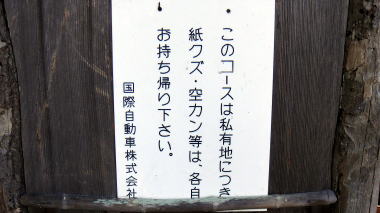 ・このコースは私有地につき
紙クズ・空カン等は、各自
お持ち帰り下さい。
国際自動車株式会社